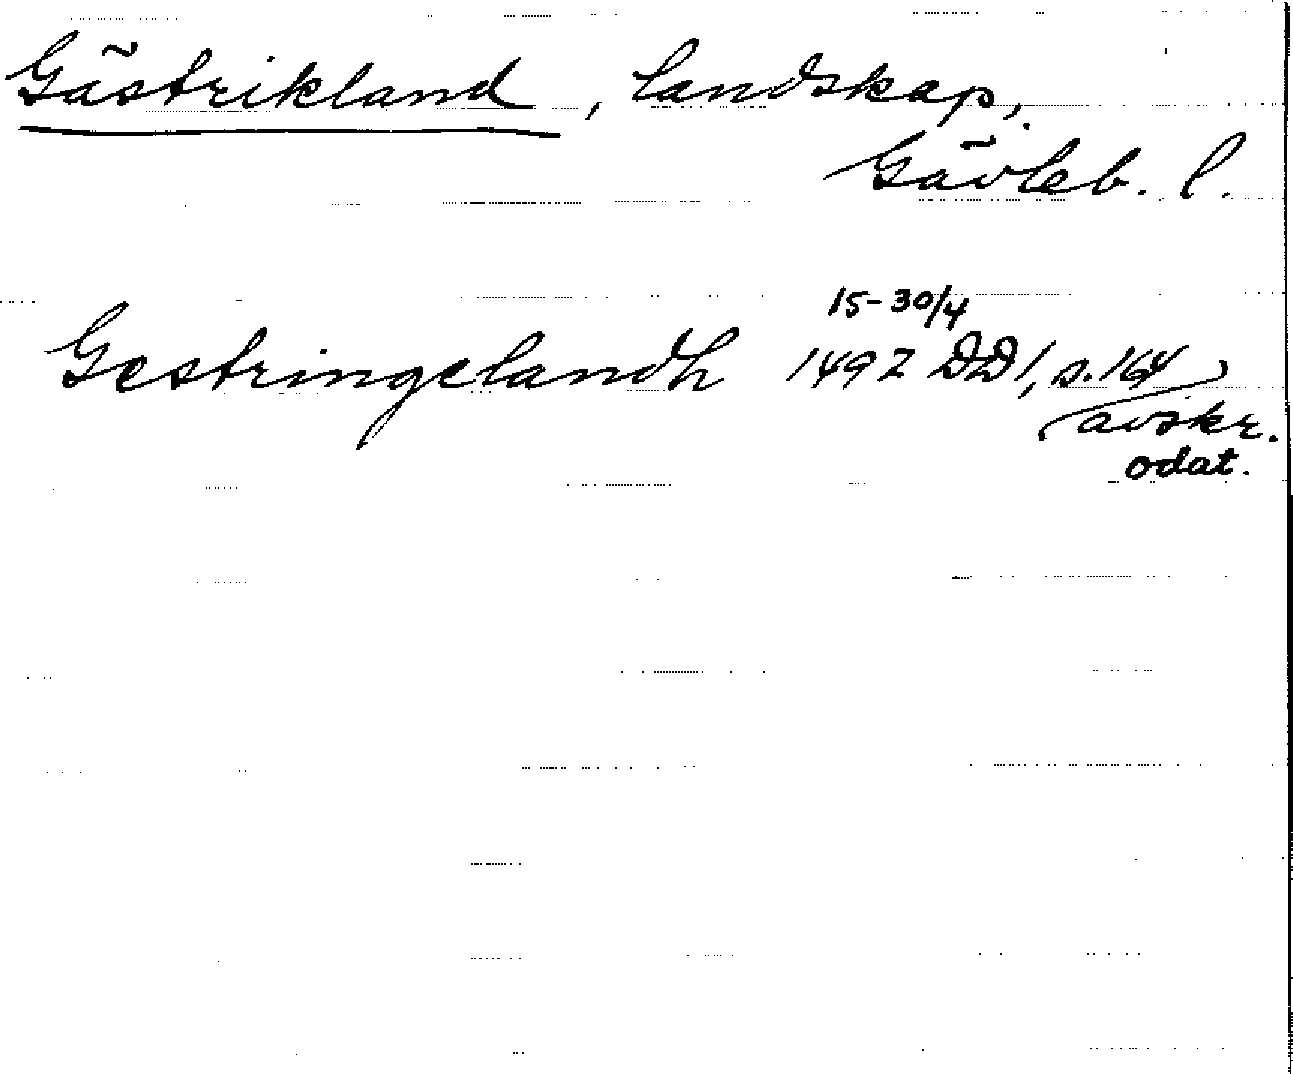 Gästrikland, landskap,
Gävleb. l.
15-30/4
Gestringelandh 1492 DD1, s. 164
avskr.
odat.